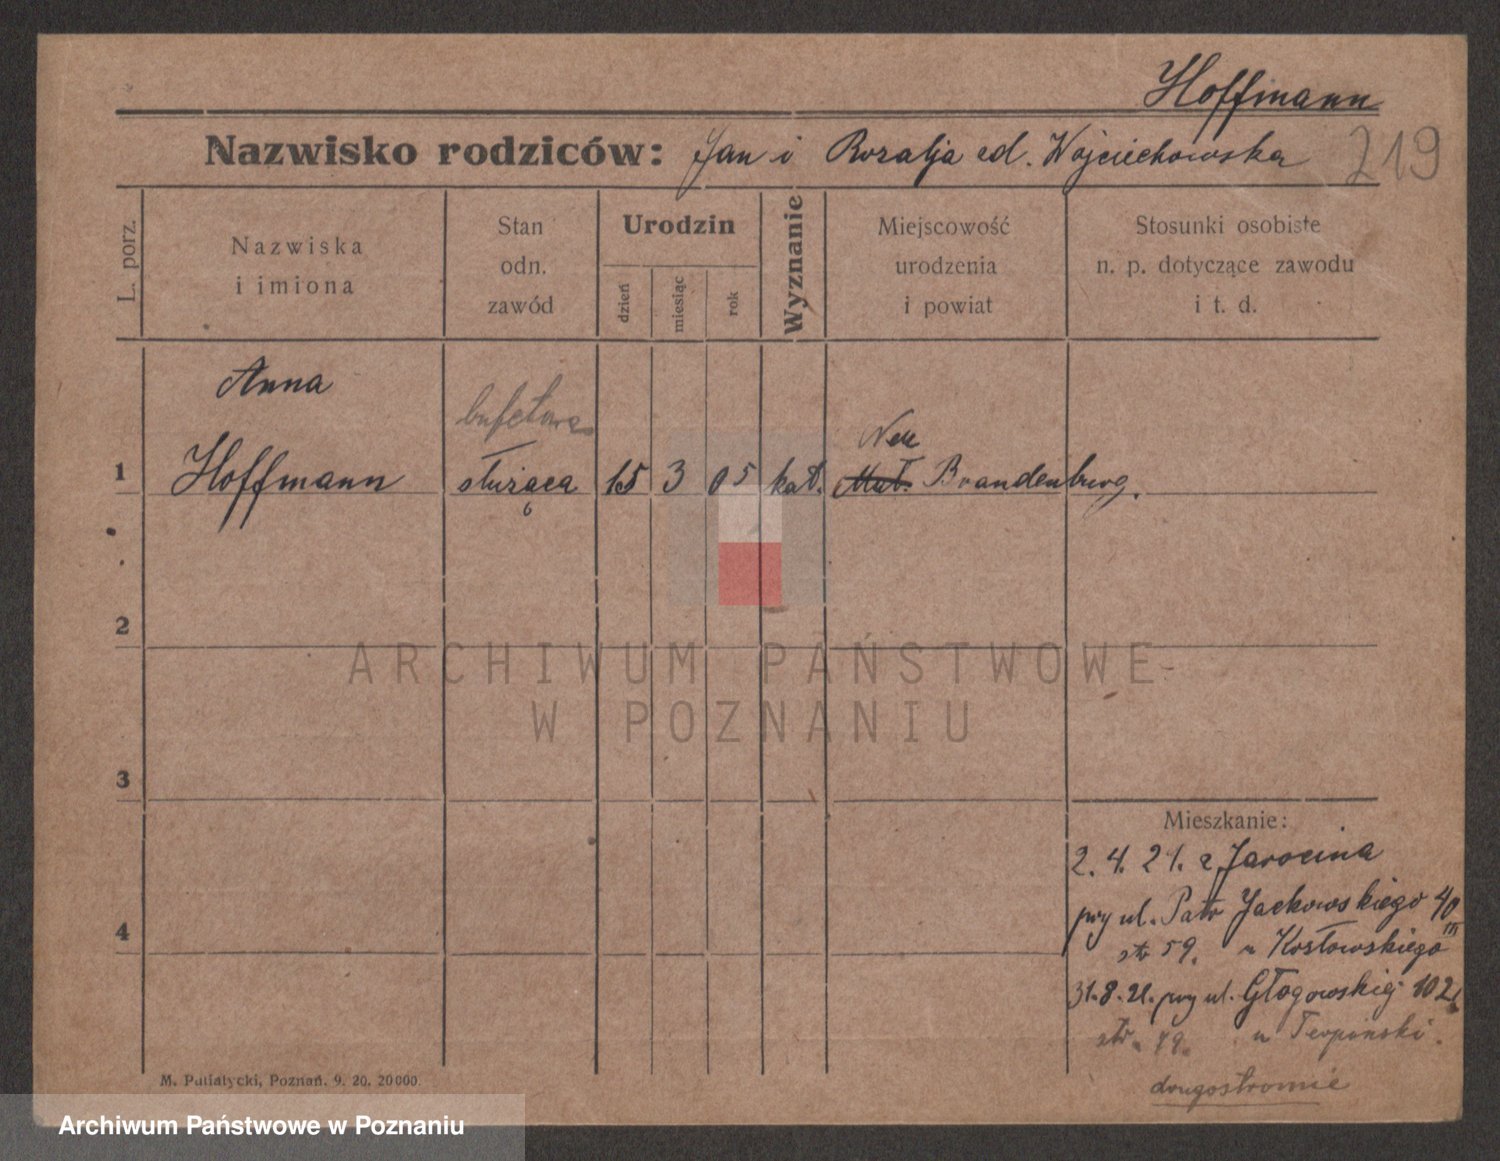 Hoffmann
Nazwisko rodziców: Jan i Rozalja zd. Wojciechowska 219
L. porz.
Nazwiska
i imiona
Stan
odn.
zawód
Urodzin
dzień
miesiąc
rok
Wyznanie
Miejscowość
urodzenia
i powiat
Stosunki osobiste
n. p. dotyczące zawodu
i t. d.
Anna
bufetowa
Neu
1 Hoffmann służąca 15 3 05 kat. Brandenburg.
2
ARCHIWUM PAŃSTWOWE
W POZNANIU
3
Mieszkanie:
2. 4. 21. z Jarocina
4
przy ul. Patr Jackowskiego 40
III
str 59. u Kosłowskiego
31. 8. 21. przy ul. Głogowskiej 102
str. 79. u
drugostronnie
M. Putiatycki, Poznań. 9. 20. 20000.
Archiwum Państwowe w Poznaniu